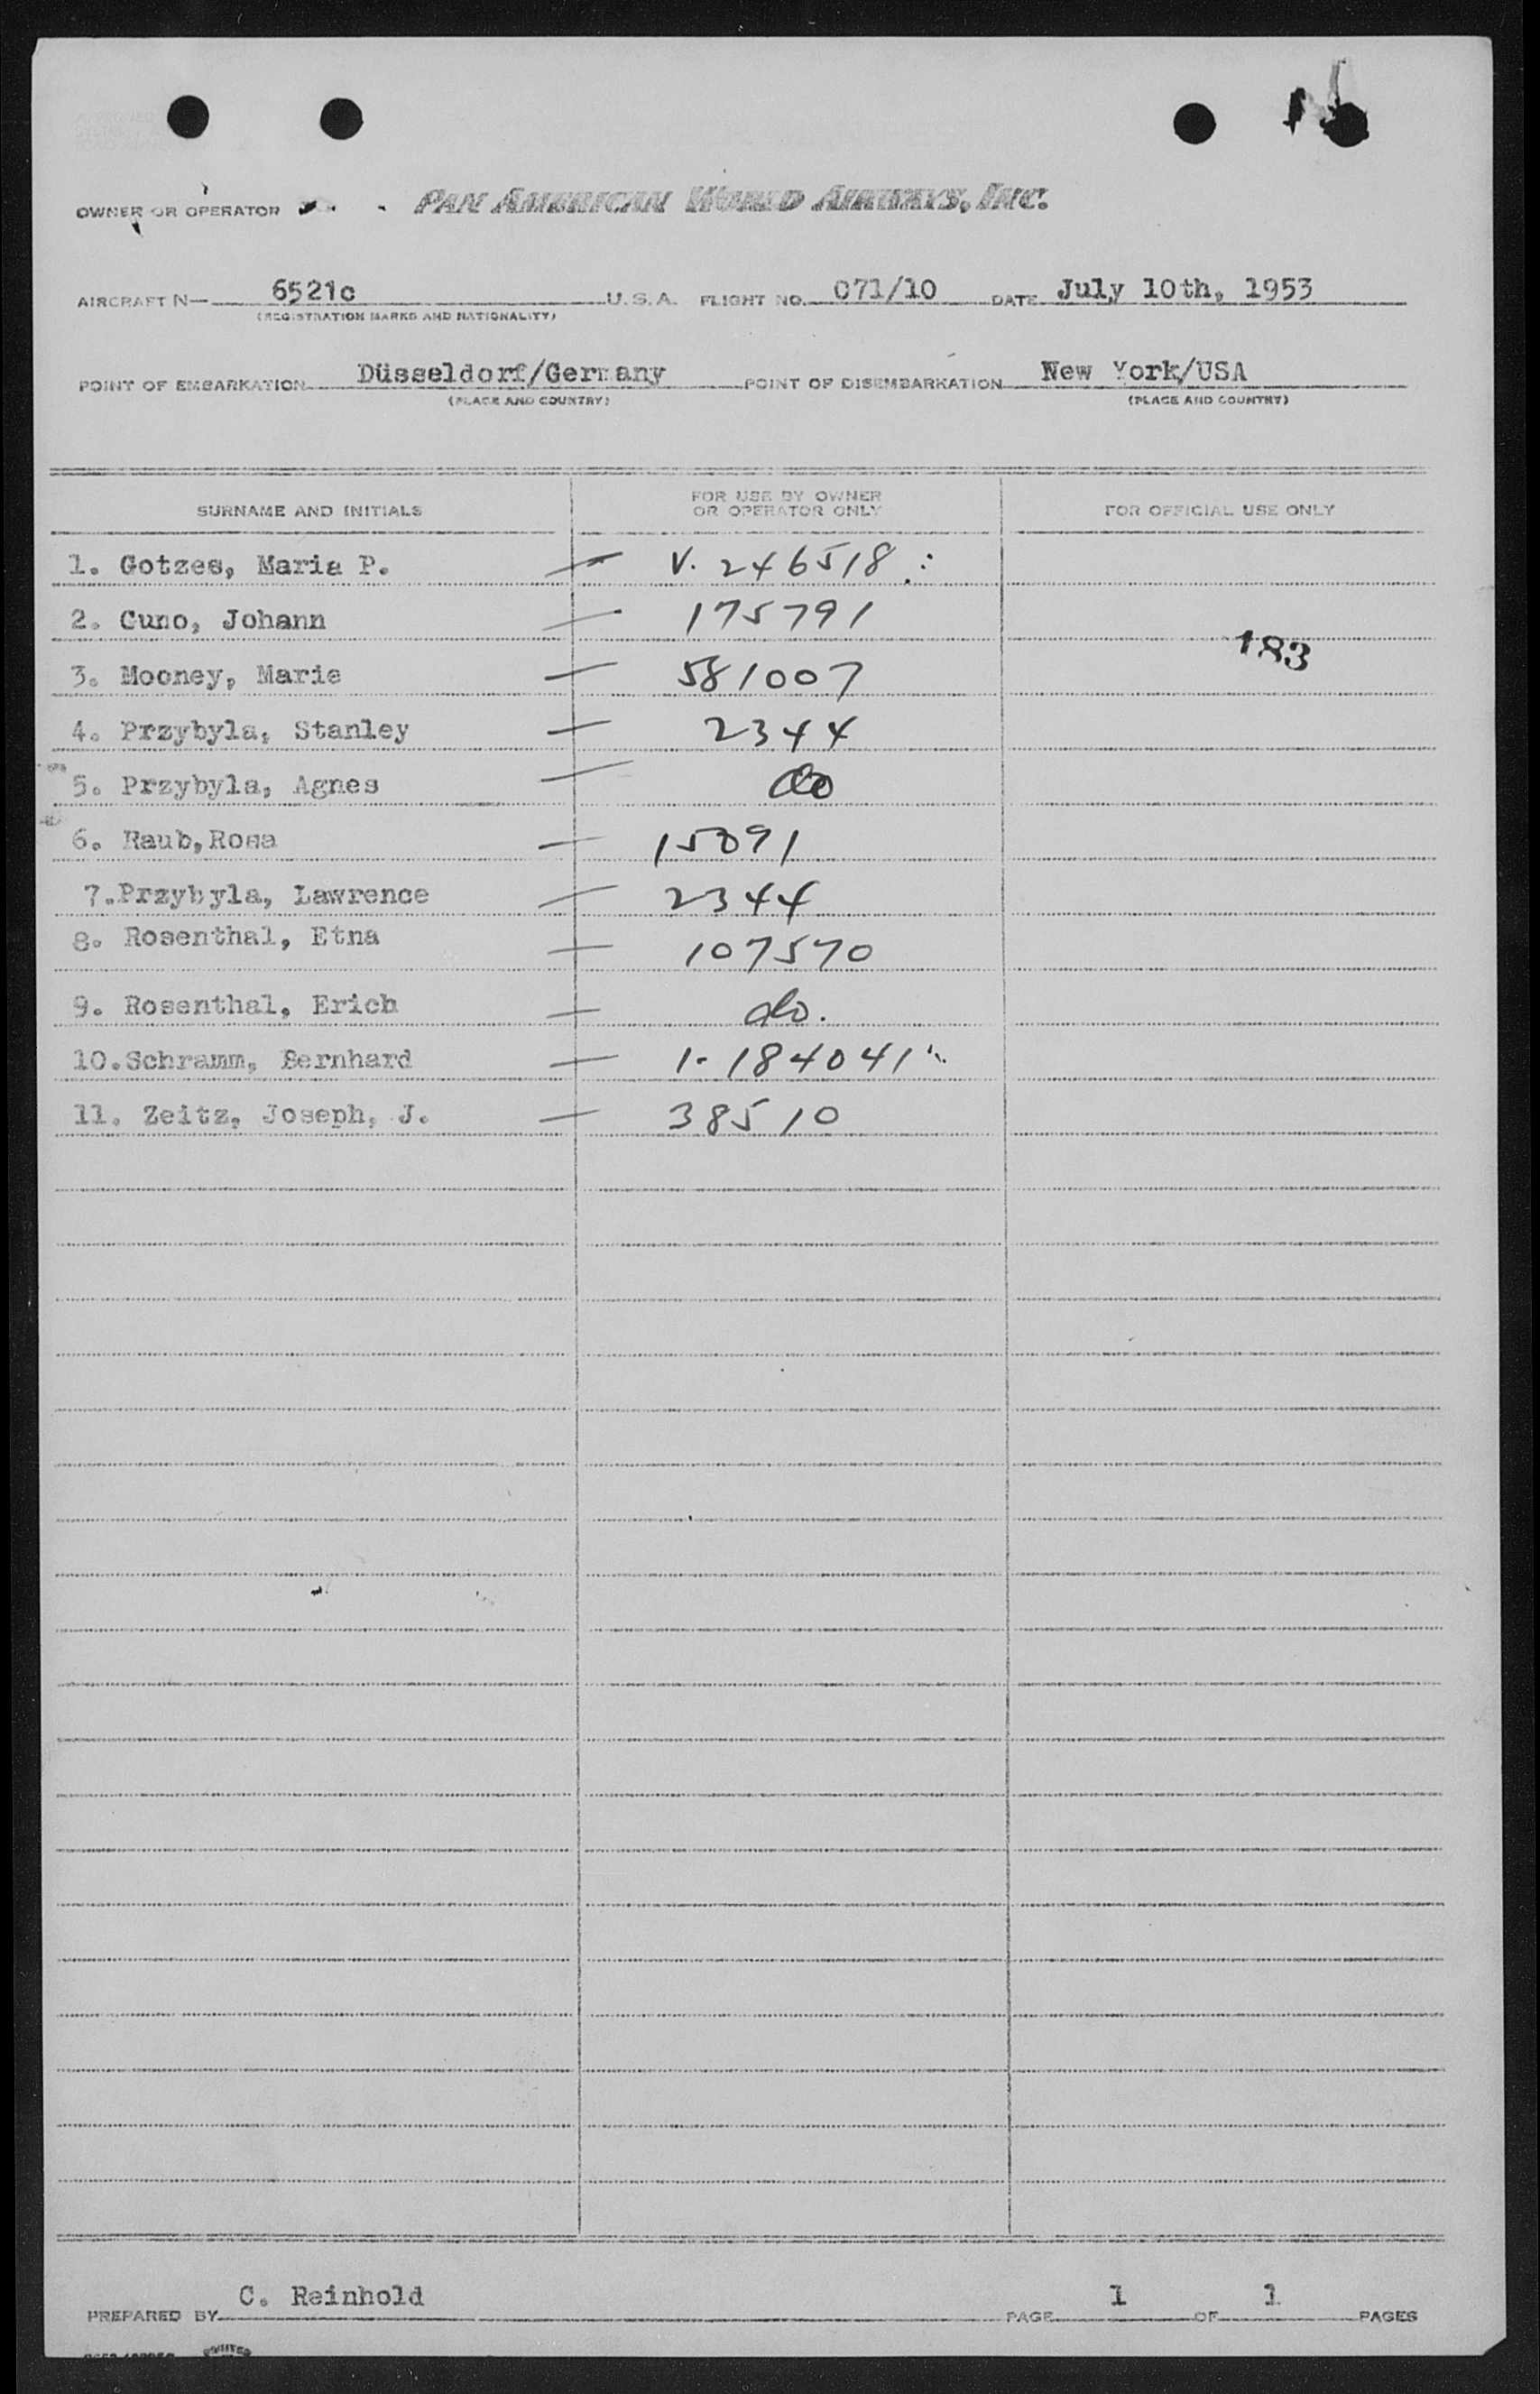 OWNER OR OPERATOR PAN AMERICAN WORLD AIRWAYS, INC.
AIRCRAFT N— 6521c U.S.A. FLIGHT NO. 071/10 DATE July 10th, 1953
(REGISTRATION MARKS AND NATIONALITY)
POINT OF EMBARKATION Düsseldorf/Germany POINT OF DISEMBARKATION New York/USA
(PLACE AND COUNTRY) (PLACE AND COUNTRY)
SURNAME AND INITIALS FOR USE BY OWNER OR OPERATOR ONLY FOR OFFICIAL USE ONLY
1. Gotzes, Maria P. — V. 246518
2. Cuno, Johann — 175791
183
3. Mooney, Marie — 581007
4. Przybyla, Stanley — 2344
5. Przybyla, Agnes — do
6. Raub, Rosa — 15891
7. Przybyla, Lawrence — 2344
8. Rosenthal, Etna — 107570
9. Rosenthal, Erich — do.
10. Schramm, Bernhard — 1-184041
11. Zeitz, Joseph, J. — 38510
PREPARED BY C. Reinhold PAGE 1 OF 1 PAGES